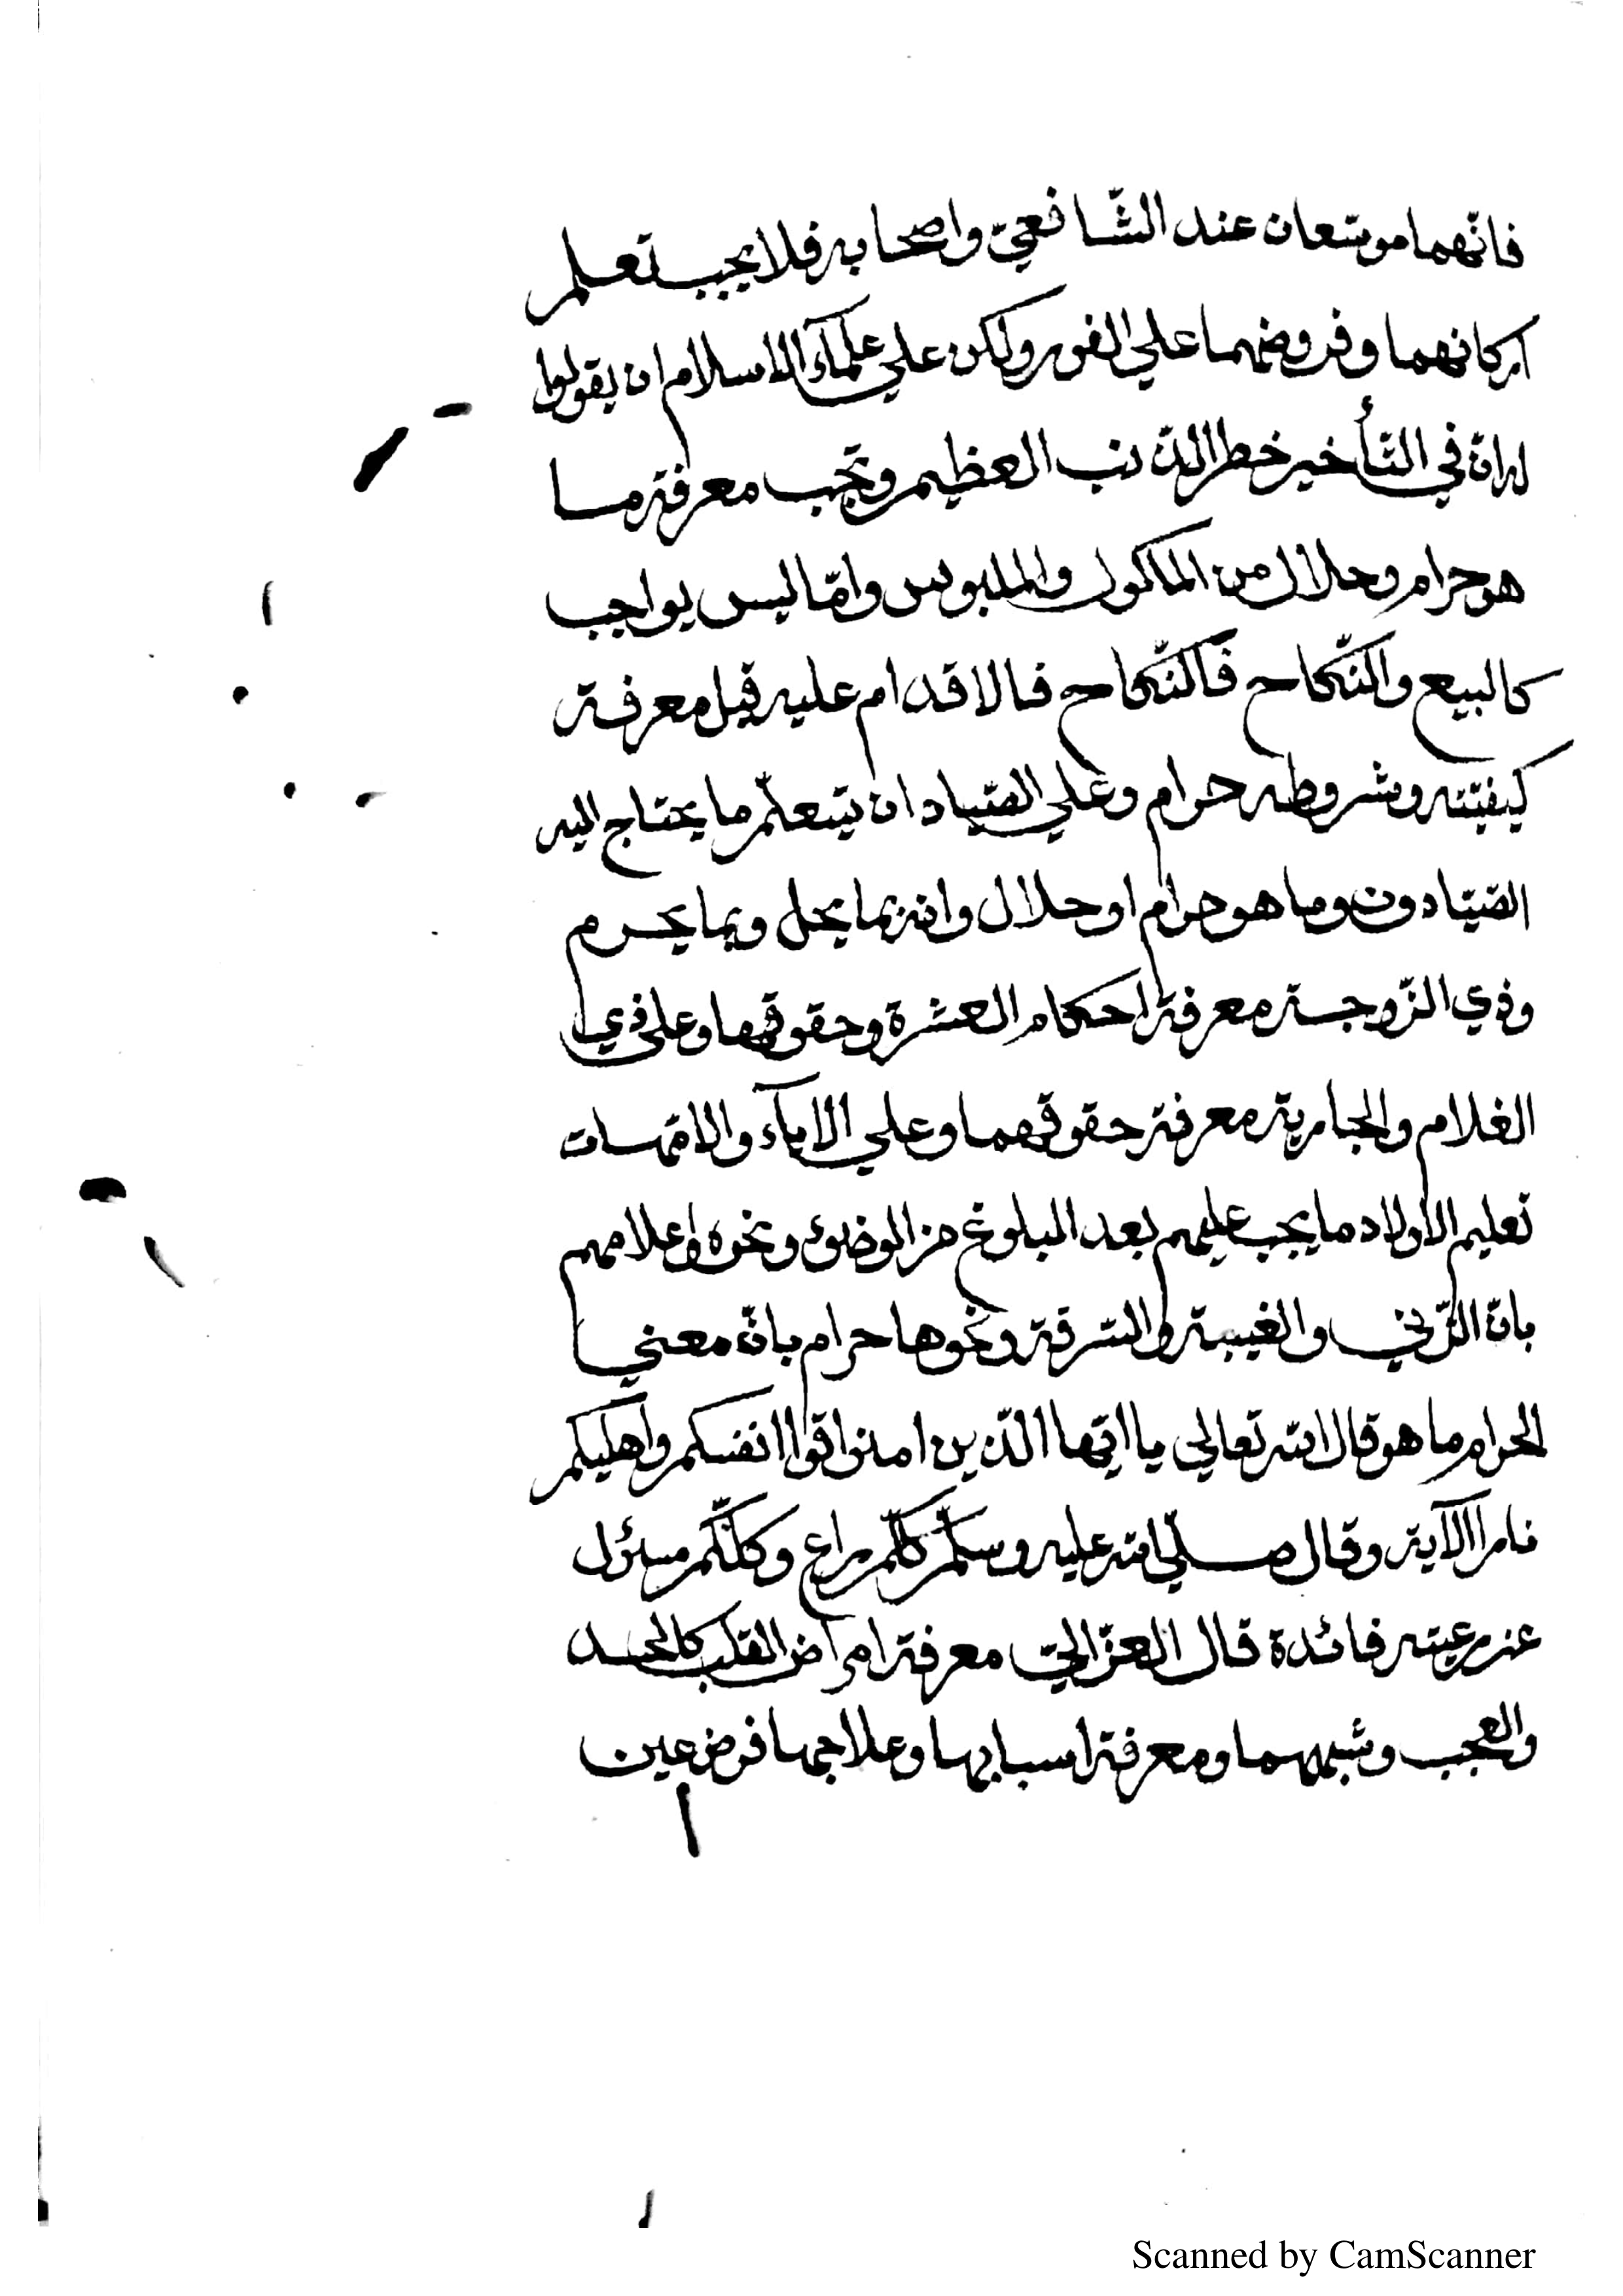 فانّهما موسّعان عند الشّافعيّ واصحابه فلا يجب تعلم
اركانهما وفروضهما علي الفور ولكن علي علمآء الاسلام ان يقولوا
له انّ في التّأخير خطر الذنب العظيم وتجب معرفة ما
هو حرام وحلال من الماكول والملبوس وامّا ليس بواجب
كالبيع والنّكاح فالنّكاح فالاقدام عليه قبل معرفة
كيفيّته وشروطه حرام وعلي الصّياد ان يتعلّم ما يحتاج اليه
الصّيّادون وما هو حرام او حلال وانه بما يحل وبما يحرم
وذي الزّوجة معرفة احكام العشرة وحقوقها وعلى ذي
الغلام والجارية معرفة حقوقهما وعلي الابآء والامّهات
تعليم الاولاد ما يجب عليهم بعد البلوغ من الوضوء ونحوه واعلامهم
بانّ الزّني والغيبة والسّرقة ونحوها حرام بانّ معني
الحرام ما هو قال الله تعالي يا ايّها الّذين امنوا قوا انفسكم واهليكم
نارا الآية وقال صلّي الله عليه وسلّم كلّكم راع وكلّكم مسؤل
عن رعيته فائدة قال الغزّاليّ معرفة امراض القلب كالحسد
والعجب وشبههما ومعرفة اسبابها وعلاجها فرض عين
Scanned by CamScanner